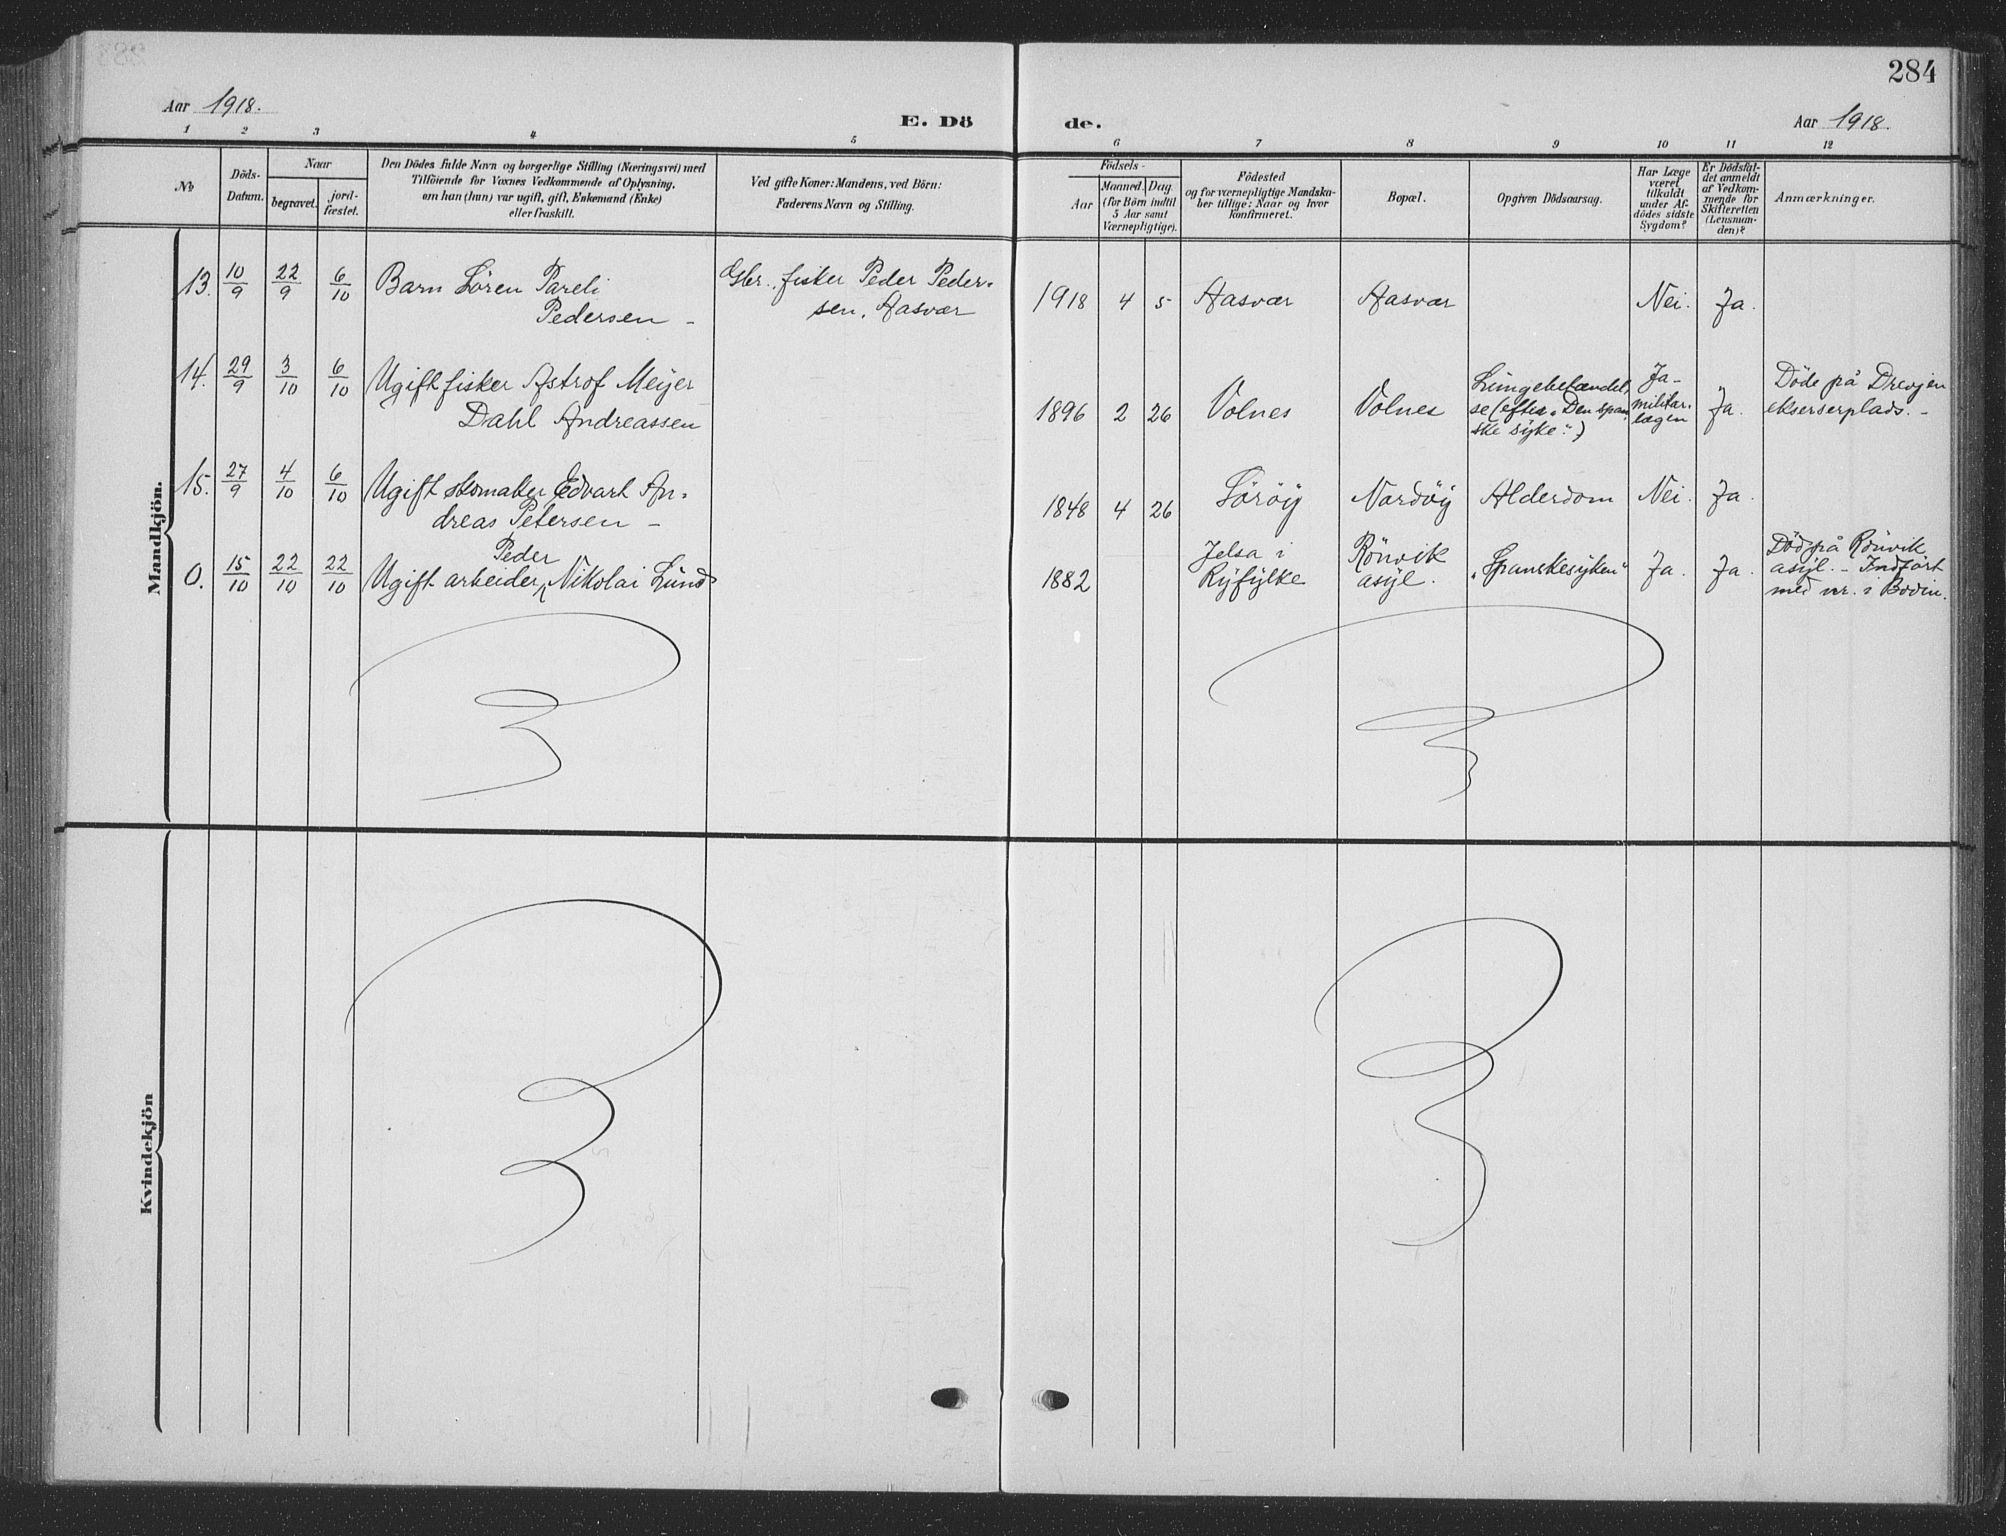 284
Aar 1918.
E. Dö
de.
Aar 1918.
1 2 3 4 5 6 7 8 9 10 11 12
No
Döds-
Datum.
Naar
begravet.
jord-
fæstet.
Den Dödes fulde Navn og borgerlige Stilling (Næringsvei) med
Tilföiende for Voxnes Vedkommende af Oplysning,
om han (hun) var ugift, gift, Enkemand (Enke)
eller fraskilt.
Ved gifte Koner: Mandens, ved Börn:
Faderens Navn og Stilling.
Födsels-
Aar
Maaned.
Dag.
(for Börn indtil
5 Aar samt
Værnepligtige).
Födested
og for værnepligtige Mandska-
ber tillige: Naar og hvor
konfirmeret.
Bopæl.
Opgiven Dödsaarsag.
Har Læge
været
tilkaldt
under Af-
dödes sidste
Sygdom?
Er Dödsfal-
det anmeldt
af Vedkom-
mende for
Skifteretten
(Lensman-
den)?
Anmærkninger.
Mandkjön.
13. 10/9 22/9 6/10 Barn Sören Pareli
Pedersen –
Gbr., fisker Peder Peder-
sen, Aasvær
1918 4 5 Aasvær Aasvær Nei. Ja.
14. 29/9 3/10 6/10 Ugift fisker Astrof Meyer
Dahl Andreassen
1896 2 26 Volnes Volnes
Lungebetændel-
se (efter "Den span-
ske syke".)
Ja –
militær-
lægen
Ja.
Döde på Drevjen
ekserserplads. –
15. 27/9 4/10 6/10 Ugift skomaker Edvart An-
dreas Petersen –
1848 4 26 Söröy Nordöy Alderdom Nei. Ja.
0. 15/10 22/10 22/10 Ugift arbeider, Peder Nikolai Lund
1882
Jelsa i
Ryfylke
Rönvik
asyl.
"Spanskesyken" Ja. Ja.
Död på Rönvik
asyl. – Indfört
med nr. i Bodin.
Kvindekjön